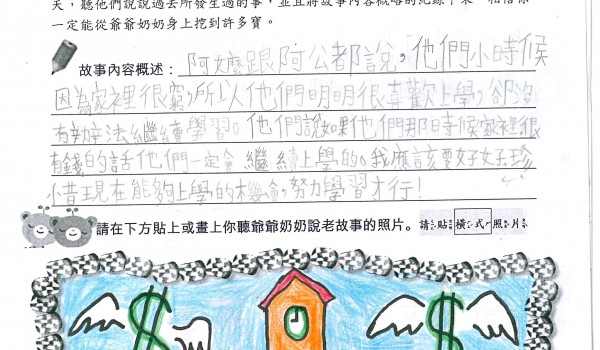 天,聽他們說說過去所發生過的事,並且將故事內容概略的紀錄下來,相信你
一定能從爺爺奶奶身上挖到許多寶。
故事內容概述:阿嬤跟阿公都說,他們小時候
因為家裡很窮,所以他們明明很喜歡上學,卻沒
有辦法繼續學習。他們說如果他們那時候家裡很
有錢的話他們一定會繼續上學的。我應該要好好珍
惜現在能夠上學的機會,努力學習才行!
請在下方貼上或畫上你聽爺爺奶奶說老故事的照片。 請貼橫式照片